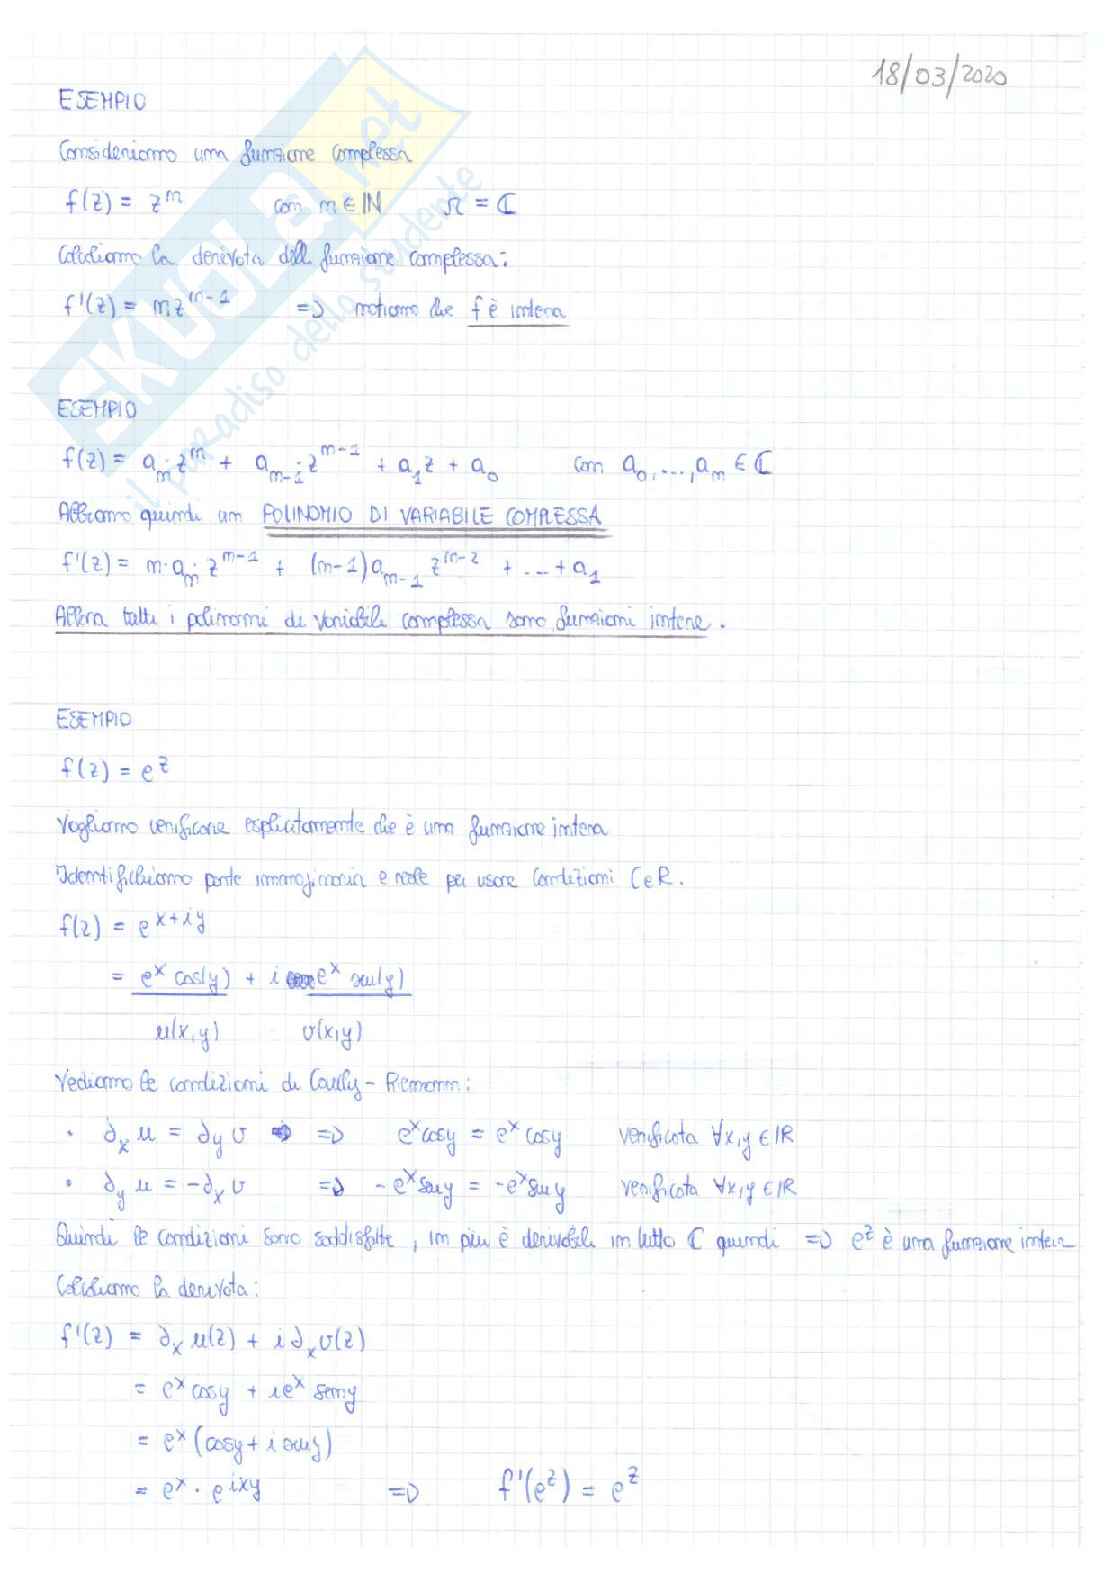 18/03/2020
ESEMPIO
Consideriamo una funzione complessa
f(z) = z^n con n ∈ ℕ Ω = ℂ
Calcoliamo la derivata dell funzione complessa:
f'(z) = n z^{n-1} => notiamo che f è intera
ESEMPIO
f(z) = a_n · z^n + a_{n-1} · z^{n-1} + a_1 z + a_0 con a_0, ..., a_n ∈ ℂ
Abbiamo quindi un POLINOMIO DI VARIABILE COMPLESSA
f'(z) = n · a_n · z^{n-1} + (n-1) a_{n-1} z^{n-2} + ... + a_1
Allora tutti i polinomi di variabile complessa sono funzioni intere.
ESEMPIO
f(z) = e^z
Vogliamo verificare esplicitamente che è una funzione intera
Identifichiamo parte immaginaria e reale per usare condizioni C e R.
f(z) = e^{x+iy}
= e^x cos(y) + i e^x sen(y)
u(x,y) v(x,y)
Vediamo le condizioni di Cauchy-Riemann:
• ∂_x u = ∂_y v => e^x cosy = e^x cosy verificata ∀x,y ∈ ℝ
• ∂_y u = -∂_x v => -e^x seny = -e^x seny verificata ∀x,y ∈ ℝ
Quindi le condizioni sono soddisfatte, in più è derivabile in tutto ℂ quindi => e^z è una funzione intera
Calcoliamo la derivata:
f'(z) = ∂_x u(z) + i ∂_x v(z)
= e^x cosy + i e^x seny
= e^x (cosy + i seny)
= e^x · e^{ixy} => f'(e^z) = e^z
SKUOLA.net
il paradiso dello studente